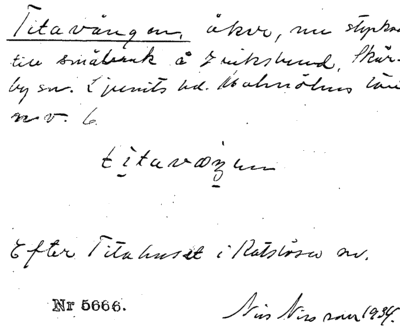 Titavången, åker, nu styckad
till småbruk å Friksbund, Skår-
by sn. Ljunits hd. Malmöhus län
n.v. 6.
titavæŋən
Efter Titahuset i Katslösa nv.
Nr 5666.
Nils Nilsson 1934.